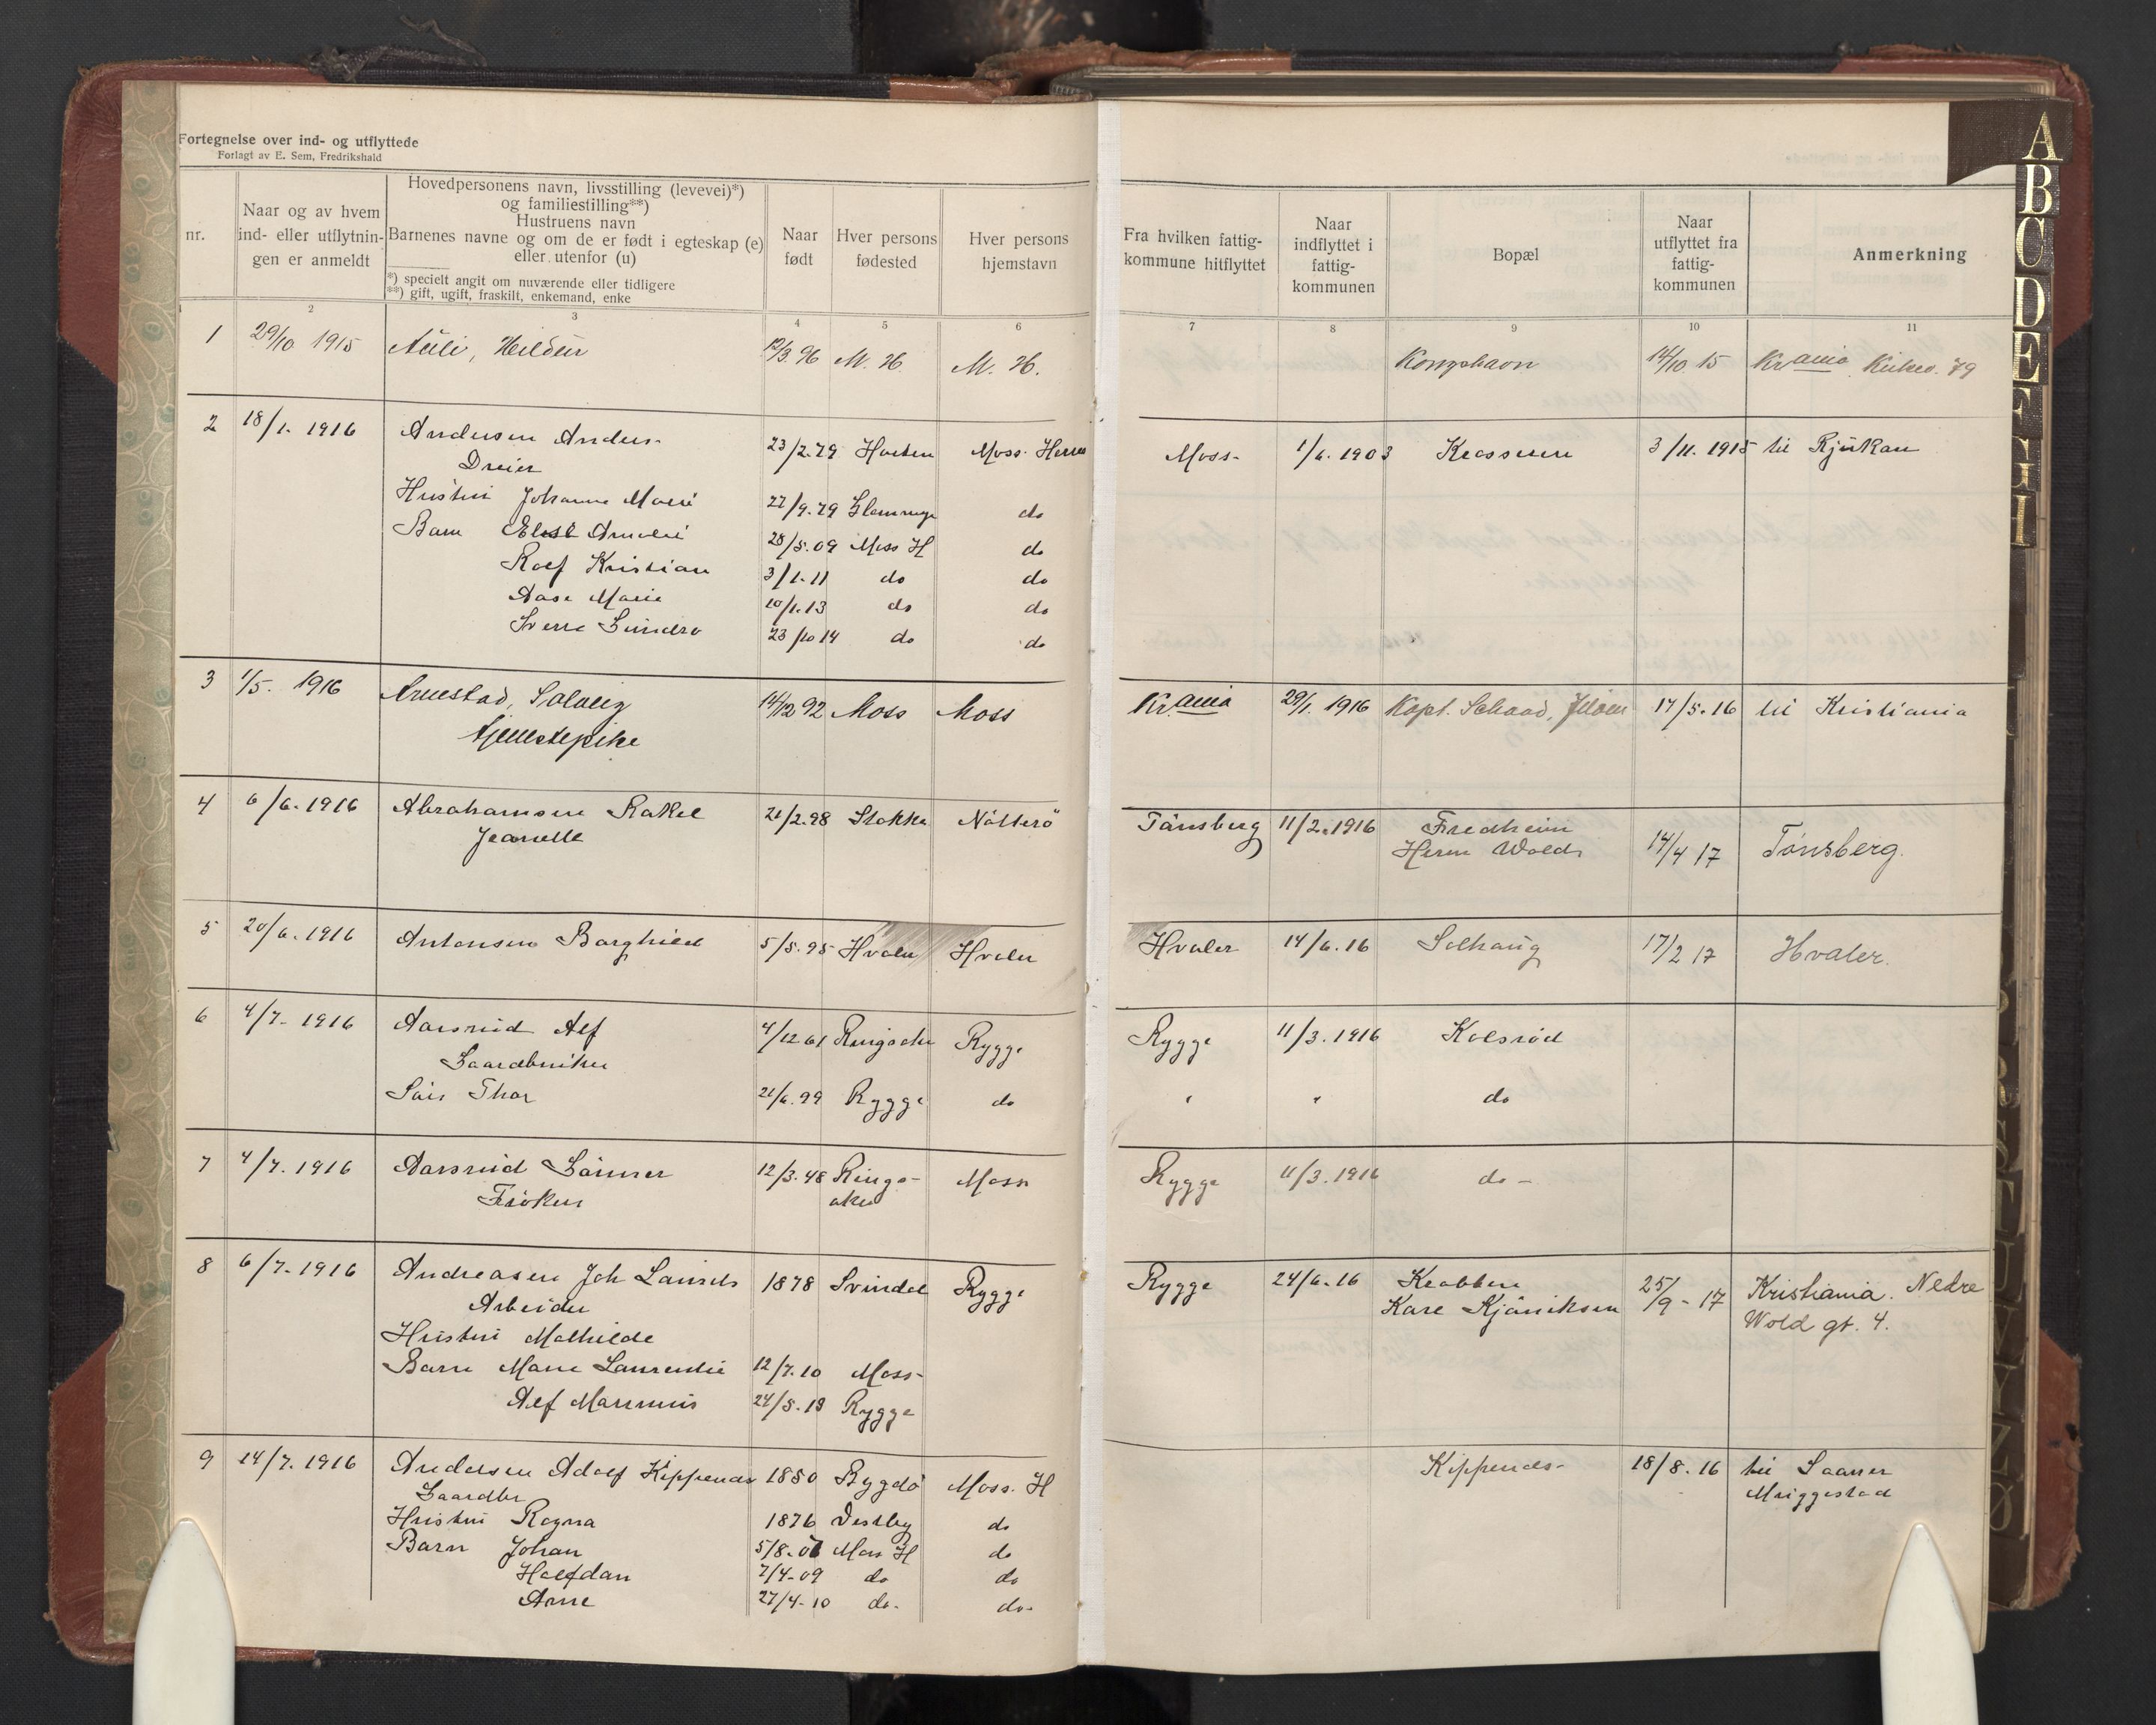 Fortegnelse over ind- og utflyttede
Forlagt av E. Sem, Fredrikshald
nr.
Naar og av hvem
ind- eller utflytnin-
gen er anmeldt
Hovedpersonens navn, livsstilling (levevei)*)
og familiestilling**)
Hustruens navn
Barnenes navne og om de er født i egteskap (e)
eller utenfor (u)
*) specielt angit om nuværende eller tidligere
**) gift, ugift, fraskilt, enkemand, enke
Naar
født
Hver persons
fødested
Hver persons
hjemstavn
Fra hvilken fattig-
kommune hitflyttet
Naar
indflyttet i
fattig-
kommunen
Bopæl
Naar
utflyttet fra
fattig-
kommunen
Anmerkning
1 2 3 4 5 6 7 8 9 10 11
1 29/10 1915 Auli, Heildur 12/3 96 M. H. M. H. Kongshavn 14/10 15 Kr.ania Kirkev. 79
2 18/1. 1916 Andersen Anders 23/2.79 Horten Moss Herred Moss- 1/6. 1903 Krosseren 3/11. 1915 til Rjukan
Dreier
Hustru Johanne Marie 22/9.79 Glemminge do
Barn Amalie 28/5.09 Moss H do
Rolf Kristian 3/1.11 do do
Aase Marie 10/1.13 do do
Sverre 23/10 14 do do
3 1/5. 1916 Arnestad, Solveig 14/12 92 Moss Moss Kr.ania 29/1. 1916 Kapt. Schaad, Jeløen 17/5.16 til Kristiania
tjenestepike
4 6/6. 1916 Abrahamsen Rakel 21/2.98 Stokke Nøtterø Tønsberg 11/2. 1916 Fredheim
Jeanelle Herm Wolds 14/4 17 Tønsberg.
5 20/6. 1916 Antonsen Borghild 5/5.95 Hvaler Hvaler Hvaler 14/6.16 Solhaug 17/2 17 Hvaler.
6 4/7. 1916 Aarsrud Alf 4/12 61 Ringsaker Rygge Rygge 11/3. 1916 Kolsrød
Gaardbruker
Søn Thor 21/6.99 Rygge do " " do
7 4/7. 1916 Aarsrud Gunner 12/3.48 Rings- Moss Rygge 11/3. 1916 do -
Frøken aker
8 6/7. 1916 Andreasen Joh Laurits 1878 Svindal Rygge Rygge 24/6.16 Krabben 25/9 - 17 Kristiania. Nedre
Arbeider Kare Kjøniksen Wold gt. 4.
Hustru Mathilde
Barn Marie Laurentie 12/7.10 Moss-
Alf Marinius 24/5.13 Rygge
9 14/7. 1916 Andersen Adolf Kippenes 1850 Rygdø Moss. H Kippenes- 18/8.16 til Saaner
Gaardbr Mriggestad
Hustru Ragna 1876 Vestby do
Barn Johan 5/8.07 Moss H do
Halfdan 7/4-09 do do
Arne 27/4-10 do- do-
A
B
C
D
E
F
G
I